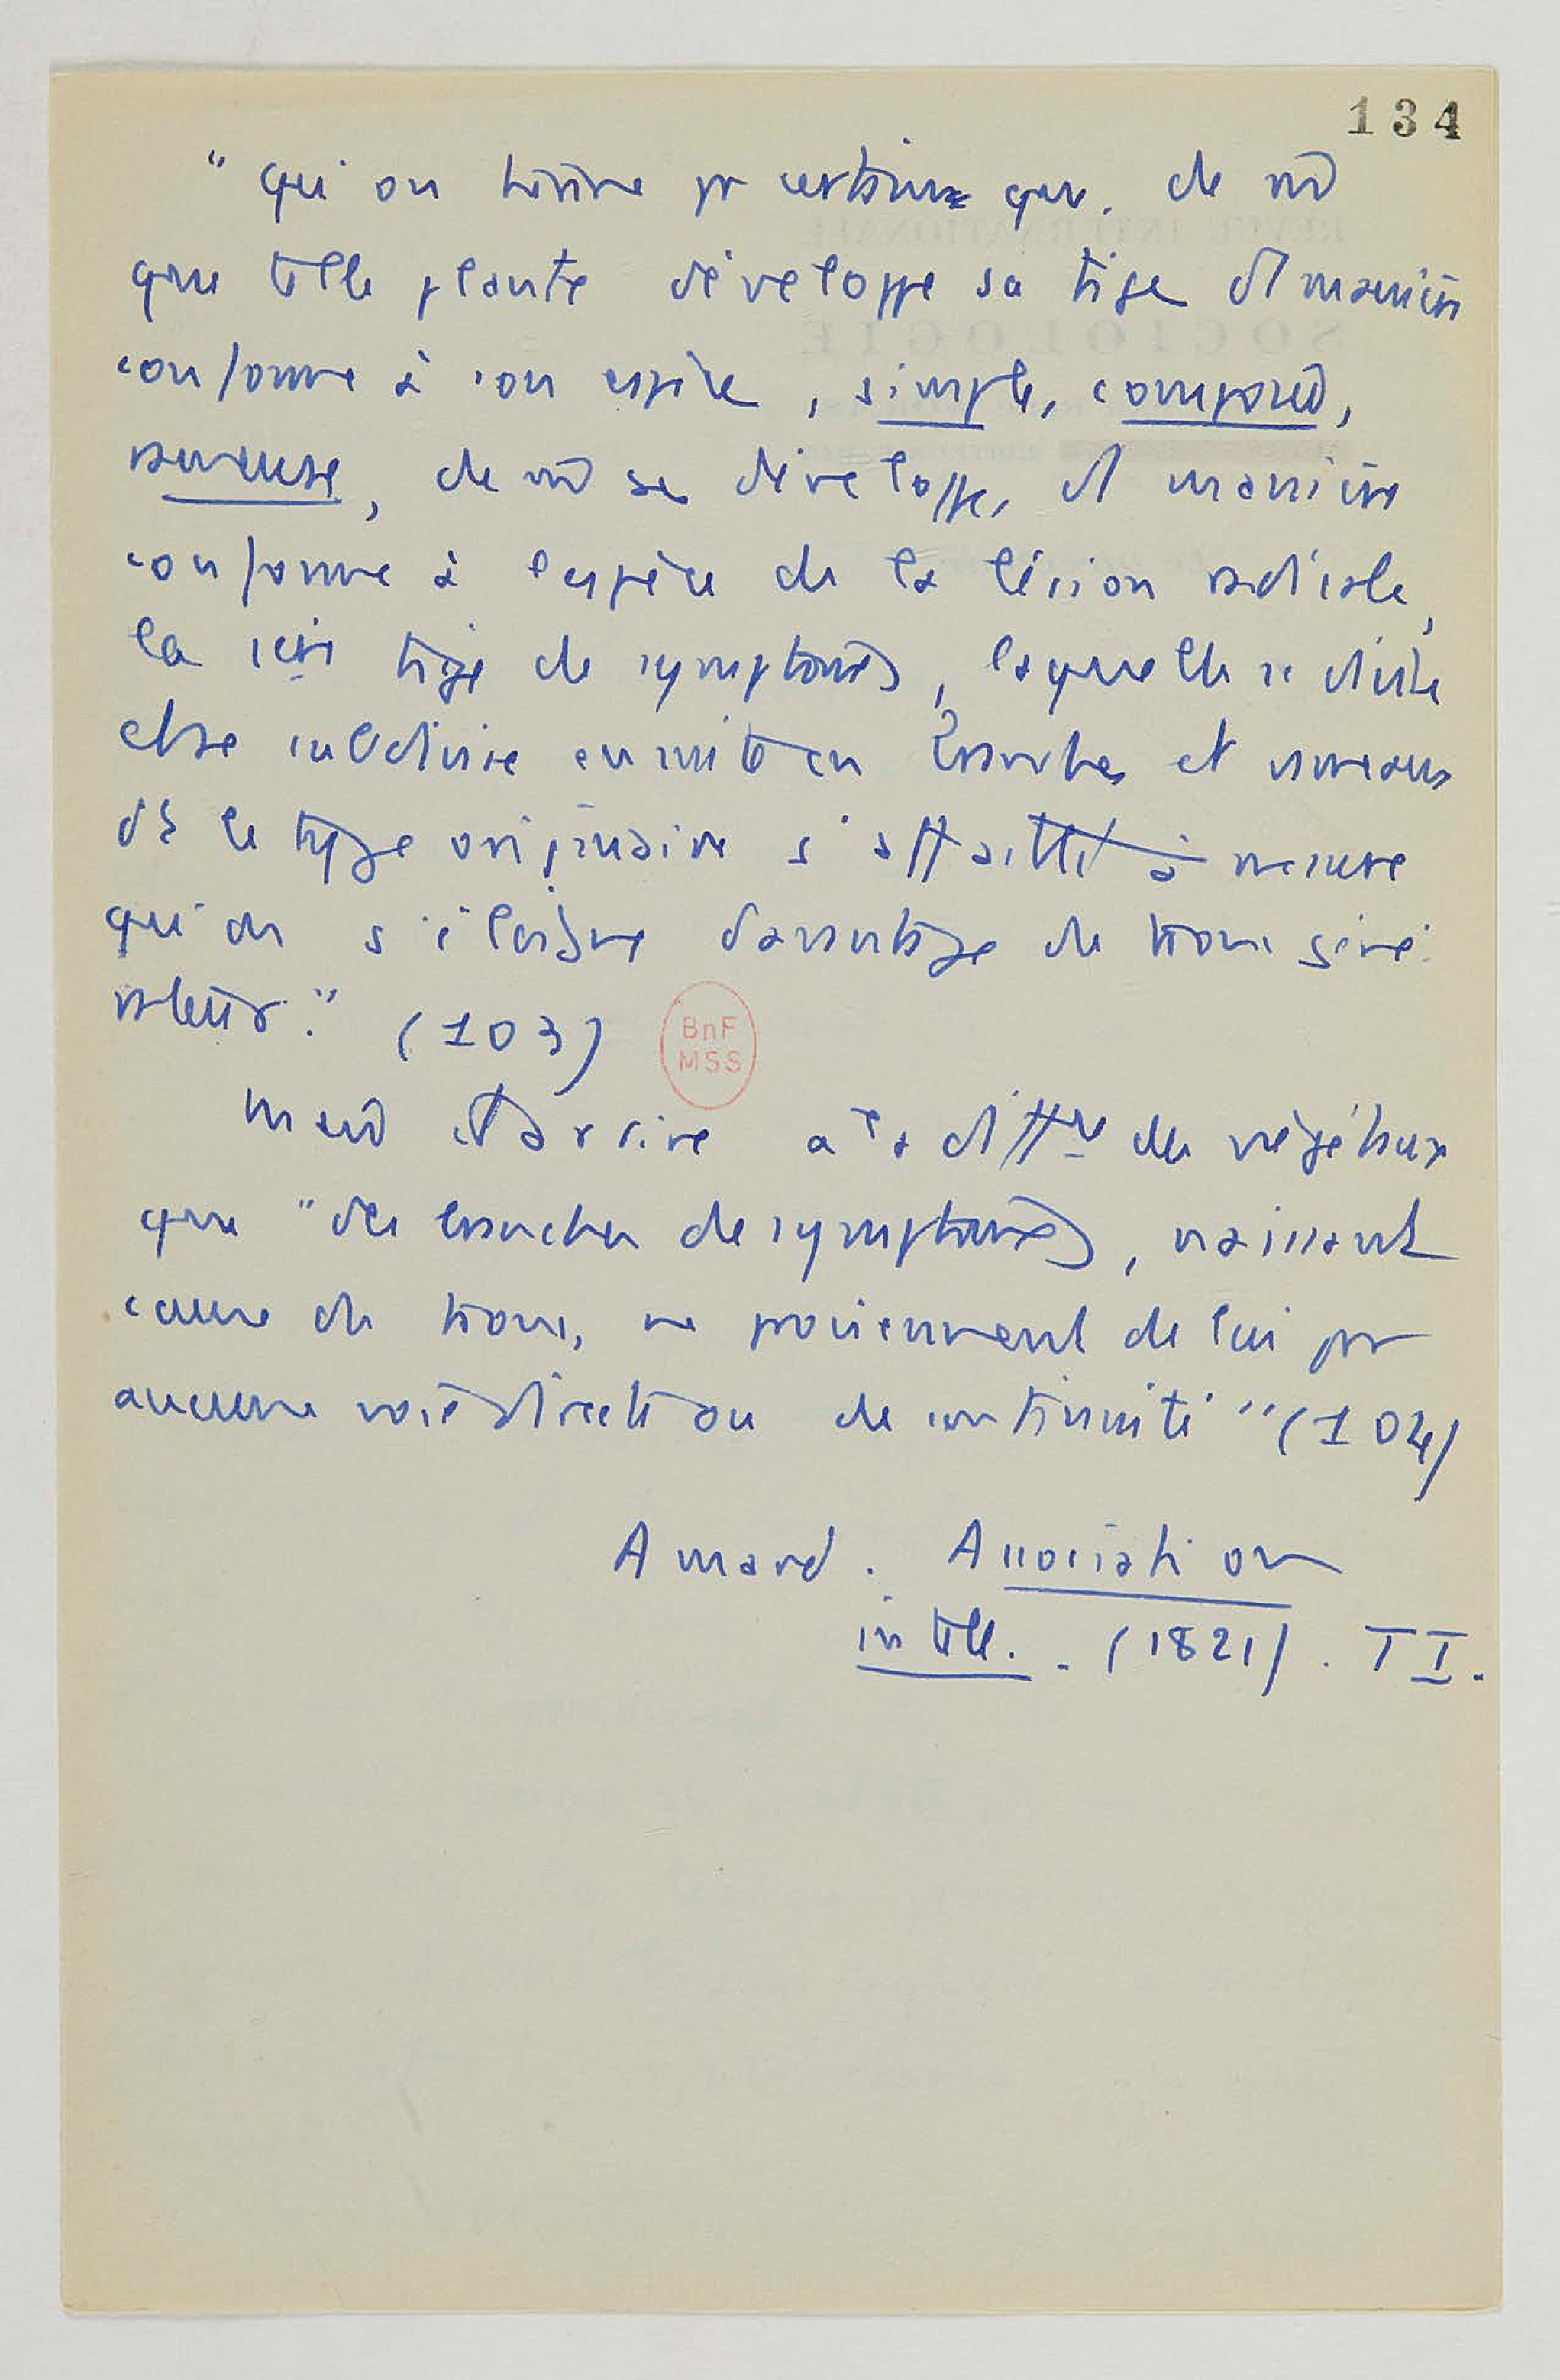 134
"qu'on tienne pr certain que, de m̂
que telle plante développe sa tige d'1 manière
conforme à son espèce, simple, composée,
rameuse, de m̂ se développe, d'1 manière
conforme à l'espèce de la lésion radicale,
la tige de symptômes, laquelle se divise
et se subdivise ensuite en branches et rameaux
ds le type originaire s'affaiblit à mesure
qu'on s'éloigne davantage du tronc géné-
rateur." (103)
Mais il arrive à la diffce des végétaux
que "des branches de symptômes, naissant
comme du tronc, ne proviennent de lui par
aucune voie directe ou de continuité" (104)
BnF
MSS
Amard. Association
intell. . (1821). T I.